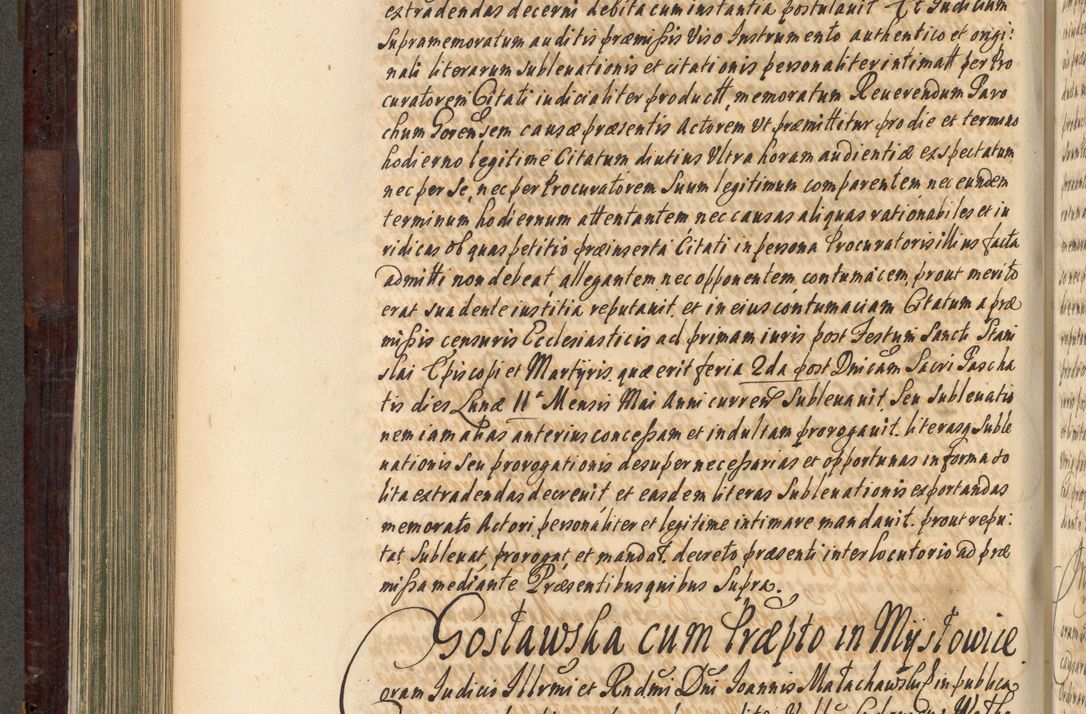 extradendas decerni debita cum instantia postulauit Et Judicium
supramemoratum auditis præmißis Viso Instrumento authentico et origi:
nali literarum subleuationis et citationis personaliter intimatt per Pro
curatorem Citati iudicialiter productt, memoratum Reuerendum Paro
chum Gorensem causæ præsentis Actorem Vt præmittitur pro die et termino
hodierno legitime Citatum diutius Vltra horam audientiæ exspectatum
nec per se, nec per Procuratorem Suum legitimum comparentem nec eundem
terminum hodiernum attentantem nec causas aliquas rationabiles et iu
ridicas ob quas petitio præinserta Citati in persona Procuratoris illius facta
admitti non debeat allegantem nec opponentem, contumacem, prout merito
erat suadente iustitia reputauit, et in eius contumaciam Citatum a præ
mißis censuris Ecclesiasticis ad primam iuris post Festum Sancti Stani
slai Episcopi et Martyris quæ erit feria 2da post Dnicam Sacri Pascha
tis dies Lunæ 11ª Mensis Mai Anni curren Subleuauit, Seu Subleuatio
nem iam alias anterius conceßam et indultam prorogauit. literasq Suble
uationis Seu prorogationis desuper neceßarias et opportunas in forma so
lita extradendas decreuit, et easdem literas Subleuationis exportandas
memorato Actori personaliter et legitime intimare mandauit. prout repu:
tat Subleuat, prorogat, et mandat. decreto præsenti interlocutorio ad præ
mißa mediante Præsentibus quibus Supra.
Gosławska cum Præpto in Mysłowice
oram Judicio Illrmi et Rndmi Dni Joannis Małachawski in publica